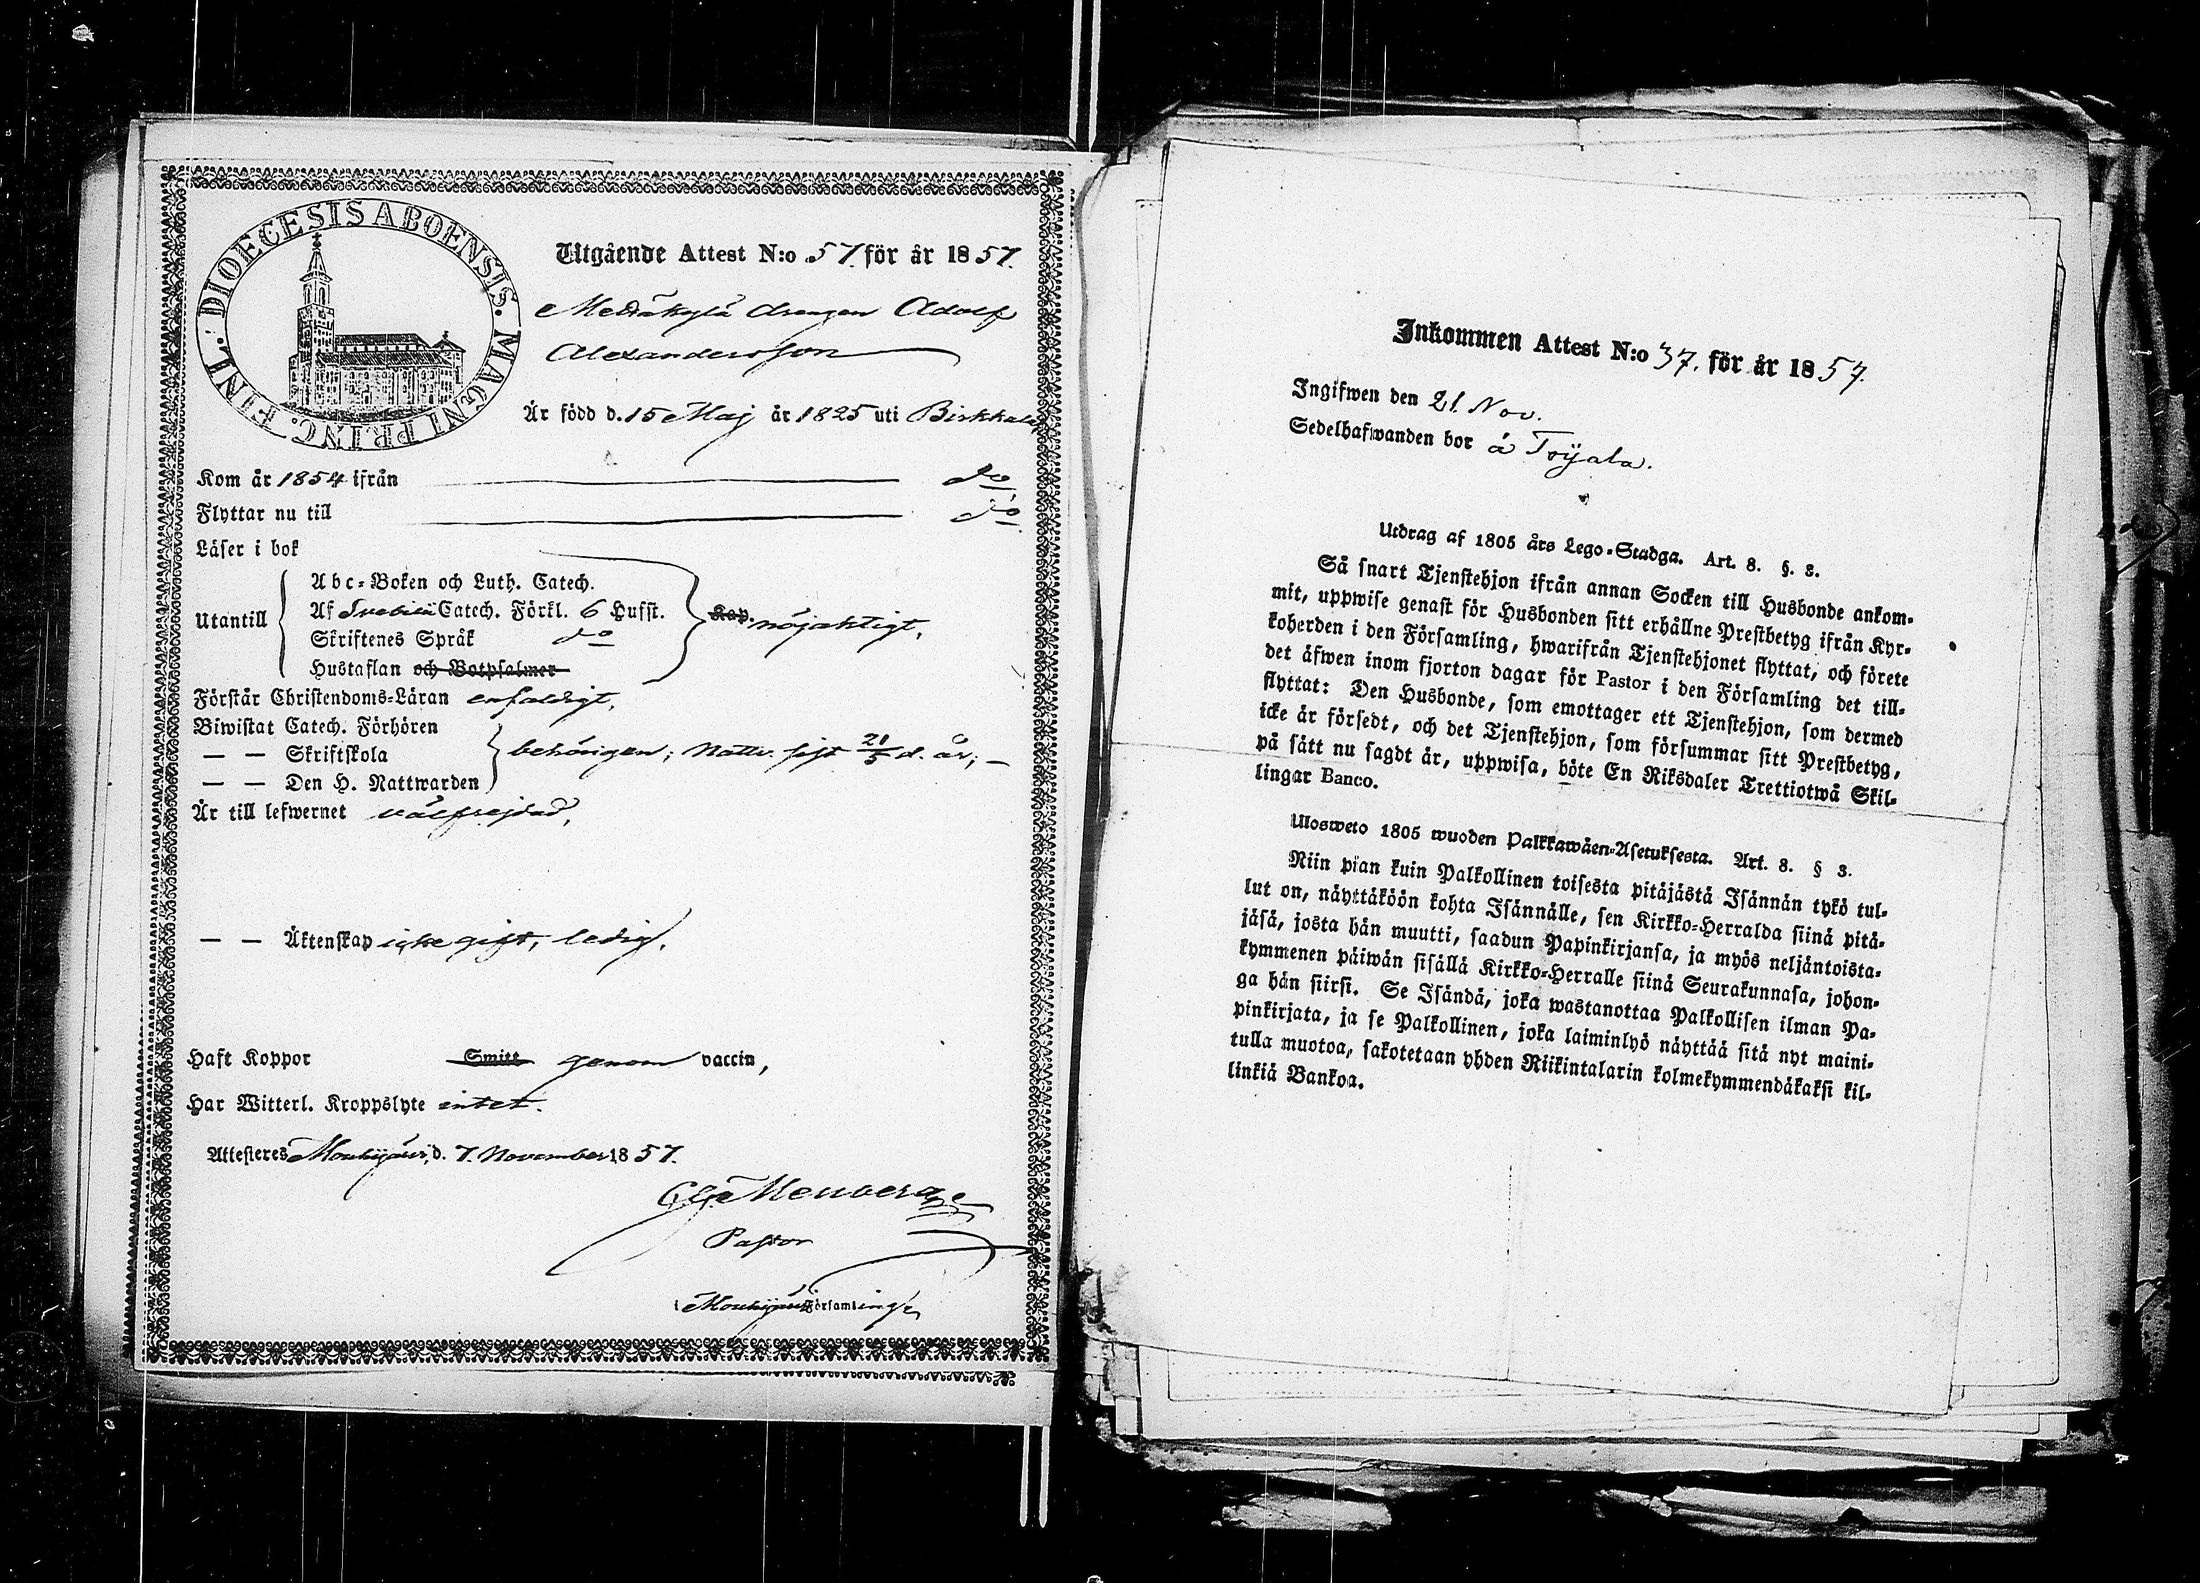 DIOECESIS ABOENSIS. MAGNI PRINC. FINL.:
Utgående Attest N:o 57. för år 1857.
Metsäkylä drengen Adolf
Alexandersson
Är född d. 15 Maj år 1825 uti Birkkala
Kom år 1854 ifrån do
Flyttar nu till do
Läser i bok
Utantill
Abc-Boken och Luth. Catech.
Af Svebilii Catech. Förkl. 6 Hufst.
Skriftenes Språk do
Hustaflan och Botpsalmer
Kap. nöjaktigt,
Förstår Christendoms-Läran enfaldigt,
Biwistat Catech. Förhören
— — Skriftskola
— — Den H. Nattwarden
behörigen; Nattv. sist 21/5 d. år; —
Är till lefwernet välfrejdad,
— — Äktenskap icke gift, ledig.
Haft Koppor Smitt genom vaccin,
Har Witterl. Kroppslyte intet.
Attesteras Mouhijärvi, d. 7. November 1857.
Pastor
i Mouhijärvi Församling
Inkommen Attest N:o 37. för år 1857.
Ingifwen den 21. Nov.
Sedelhafwanden bor å
Utdrag af 1805 års Lego-Stadga. Art. 8. §. 3.
Så snart Tjenstehjon ifrån annan Socken till Husbonde ankom-
mit, uppwise genast för Husbonden sitt erhållne Prestbetyg ifrån Kyr-
koherden i den Församling, hwarifrån Tjenstehjonet flyttat, och förete
det äfwen inom fjorton dagar för Pastor i den Församling det till-
flyttat: Den Husbonde, som emottager ett Tjenstehjon, som dermed
icke är försedt, och det Tjenstehjon, som försummar sitt Prestbetyg,
på sätt nu sagdt är, uppwisa, böte En Riksdaler Trettiotwå Skil-
lingar Banco.
Ulosweto 1805 wuoden Palkkawäen-Asetuksesta. Art. 8. § 3.
Niin pian kuin Palkollinen toisesta pitäjästä Isännän tykö tul-
lut on, näyttäköön kohta Isännälle, sen Kirkko-Herralda siinä pitä-
jäsä, josta hän muutti, saadun Papinkirjansa, ja myös neljäntoista-
kymmenen päiwän sisällä Kirkko-Herralle siinä Seurakunnasa, johon-
ga hän siirsi. Se Isändä, joka wastanottaa Palkollisen ilman Pa-
pinkirjata, ja se Palkollinen, joka laiminlyö näyttää sitä nyt maini-
tulla muotoa, sakotetaan yhden Riikintalarin kolmekymmendäkaksi kil-
linkiä Bankoa.